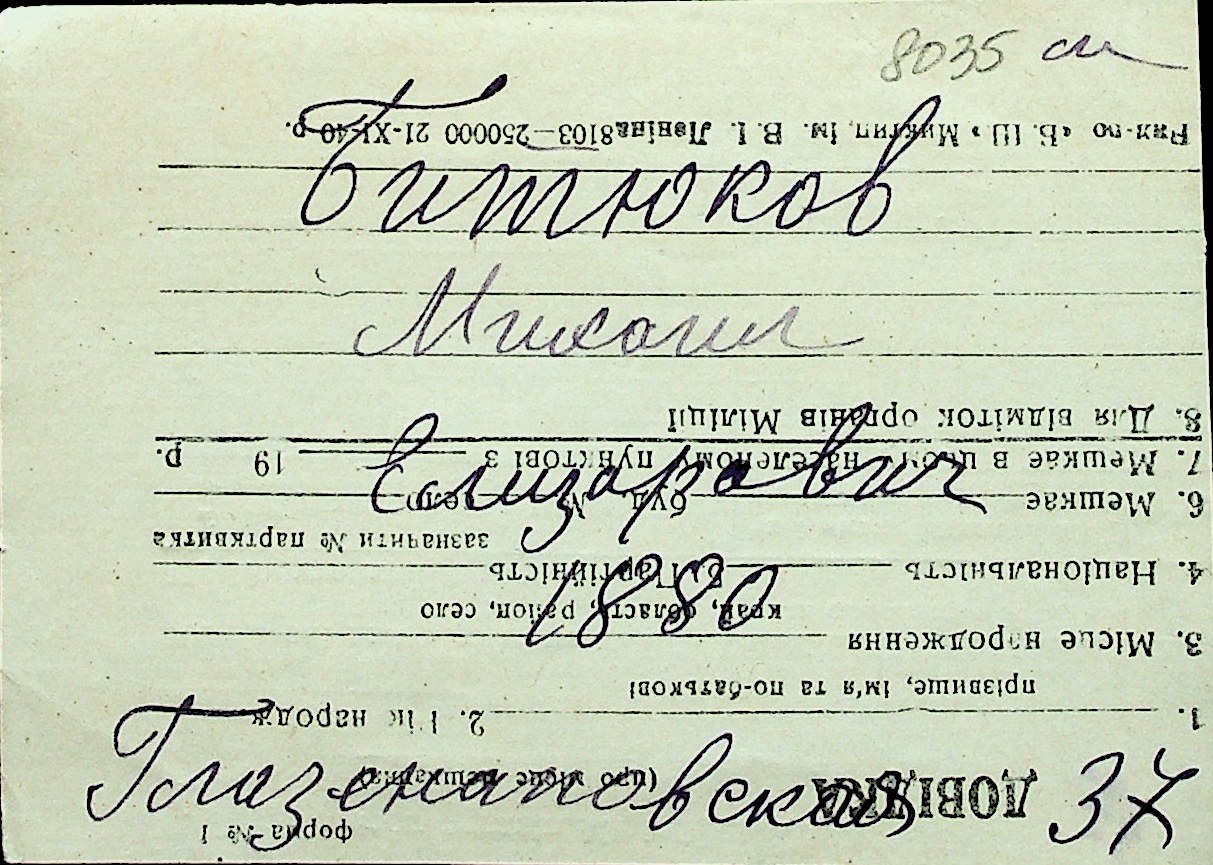 8035
Битюков
Михаил
Елизарович
1880
Глазенаповская 37
ДОВІДКА
форма № 1
(про місце мешкання)
1.
2. Рік народж
прізвище, ім'я та по-батькові
3. Місце народження
край, область, район, село
4. Національність 5. Партійність
зазначити № партквитка
6. Мешкає буд № село
7. Мешкає в цьому населеному пунктові з 19 р.
8. Для відміток органів Міліції
«Б. Ш.» Миктип. ім. В. І. Леніна 8103—250000 21-XI-40 р.